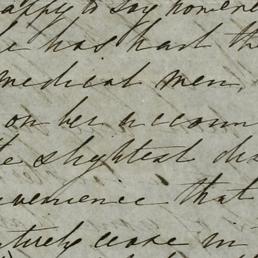 happy to say however
he has had the
medical men,
on her account
the slightest dis
venience that
tively cease in